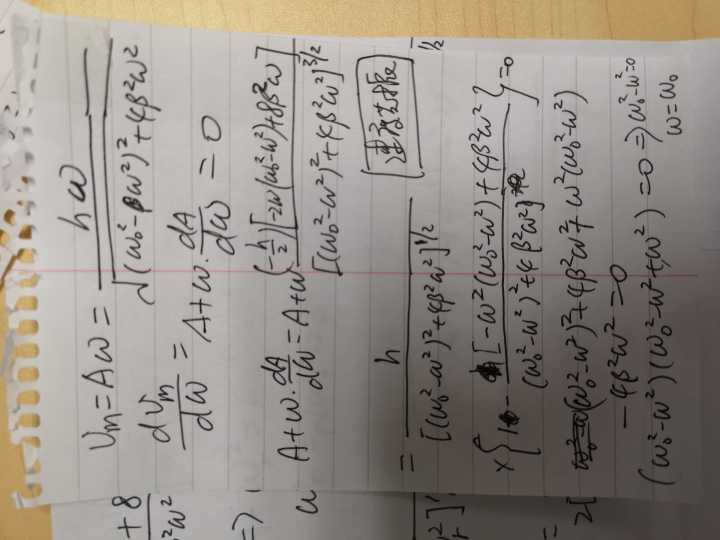 Um = Aω = hω / √((ω₀²-ω²)²+4β²ω²)
dUm/dω = A+ω·dA/dω = 0
A+ω·dA/dω = A+ω (-h/2)[-2ω(ω₀²-ω²)+8β²ω] / [(ω₀²-ω²)²+4β²ω²]^3/2
= h / [(ω₀²-ω²)²+4β²ω²]^1/2
速度共振
×{1 - [-ω²(ω₀²-ω²)+4β²ω²] / (ω₀²-ω²)²+4β²ω²} = 0
(ω₀²-ω²)²+4β²ω²+ω²(ω₀²-ω²)
-4β²ω² = 0
(ω₀²-ω²)(ω₀²-ω²+ω²) = 0 ⇒ ω₀²-ω²=0
ω=ω₀
+8